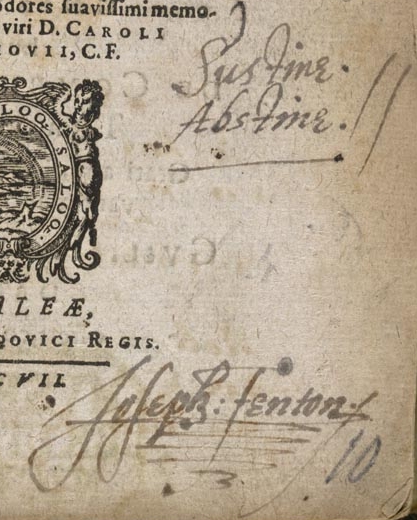 dores suavissimi memo-
viri D. CAROLI
OVII, C. F.
Sustine.
Abstine.
LOQ. SALOQ.
LEÆ,
DOVICI REGIS.
CVII.
Joseph: fenton:
10